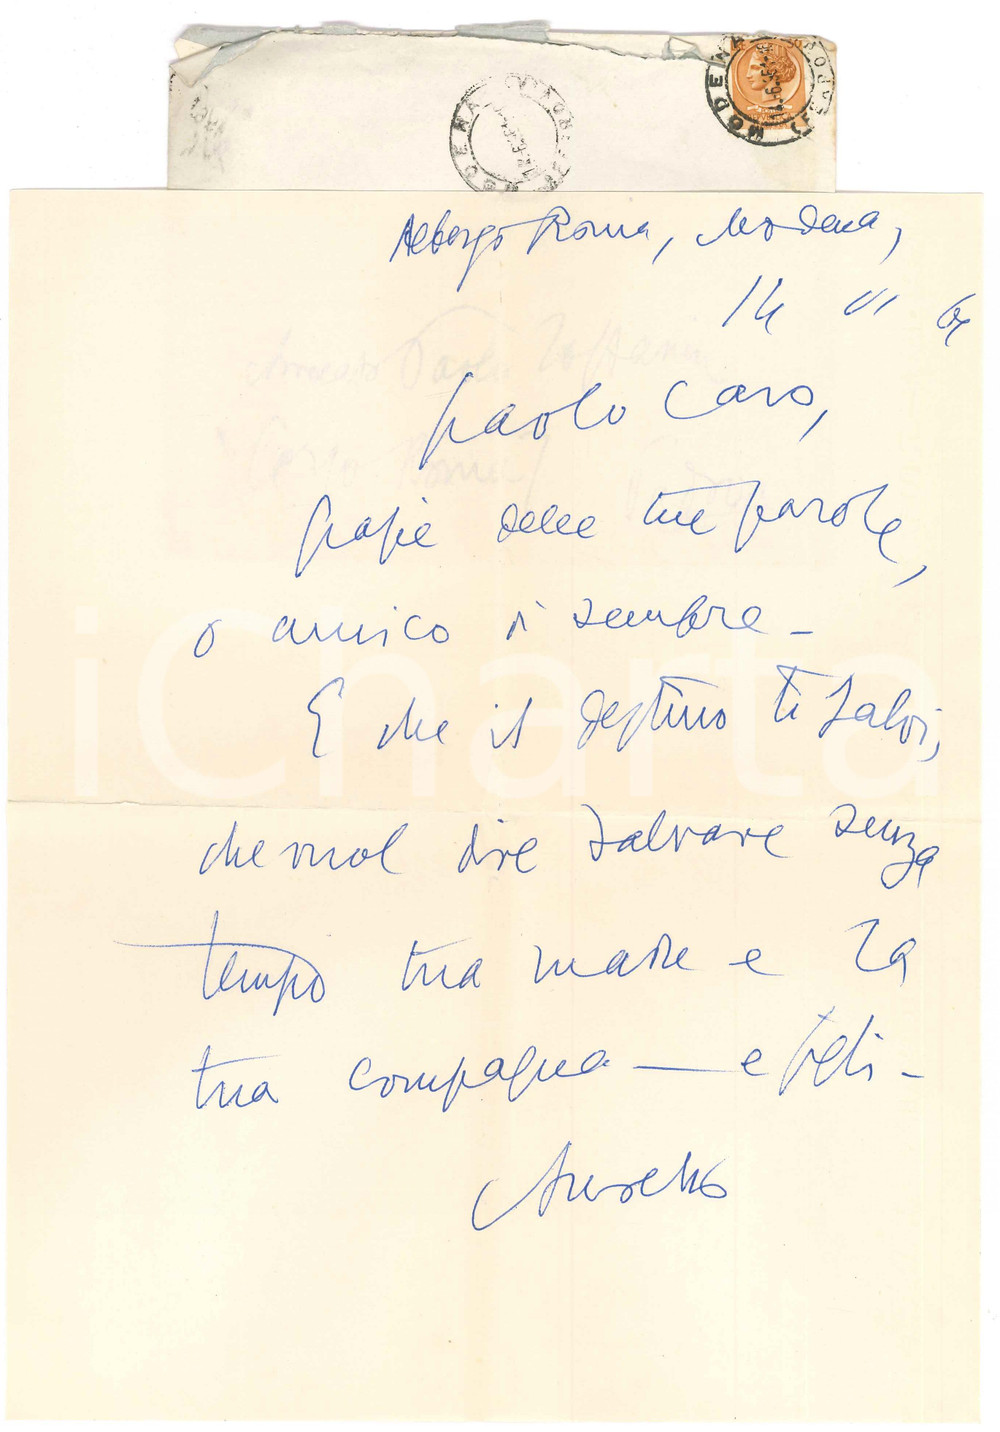 MODENA
MODENA
Albergo Roma, Modena,
14 VI 64
Paolo caro,
grazie delle tue parole,
o amico di sempre –
E che il destino ti salvi,
che vuol dire salvare senza
tempo tua madre e la
tua compagna — e figli –
iCharta